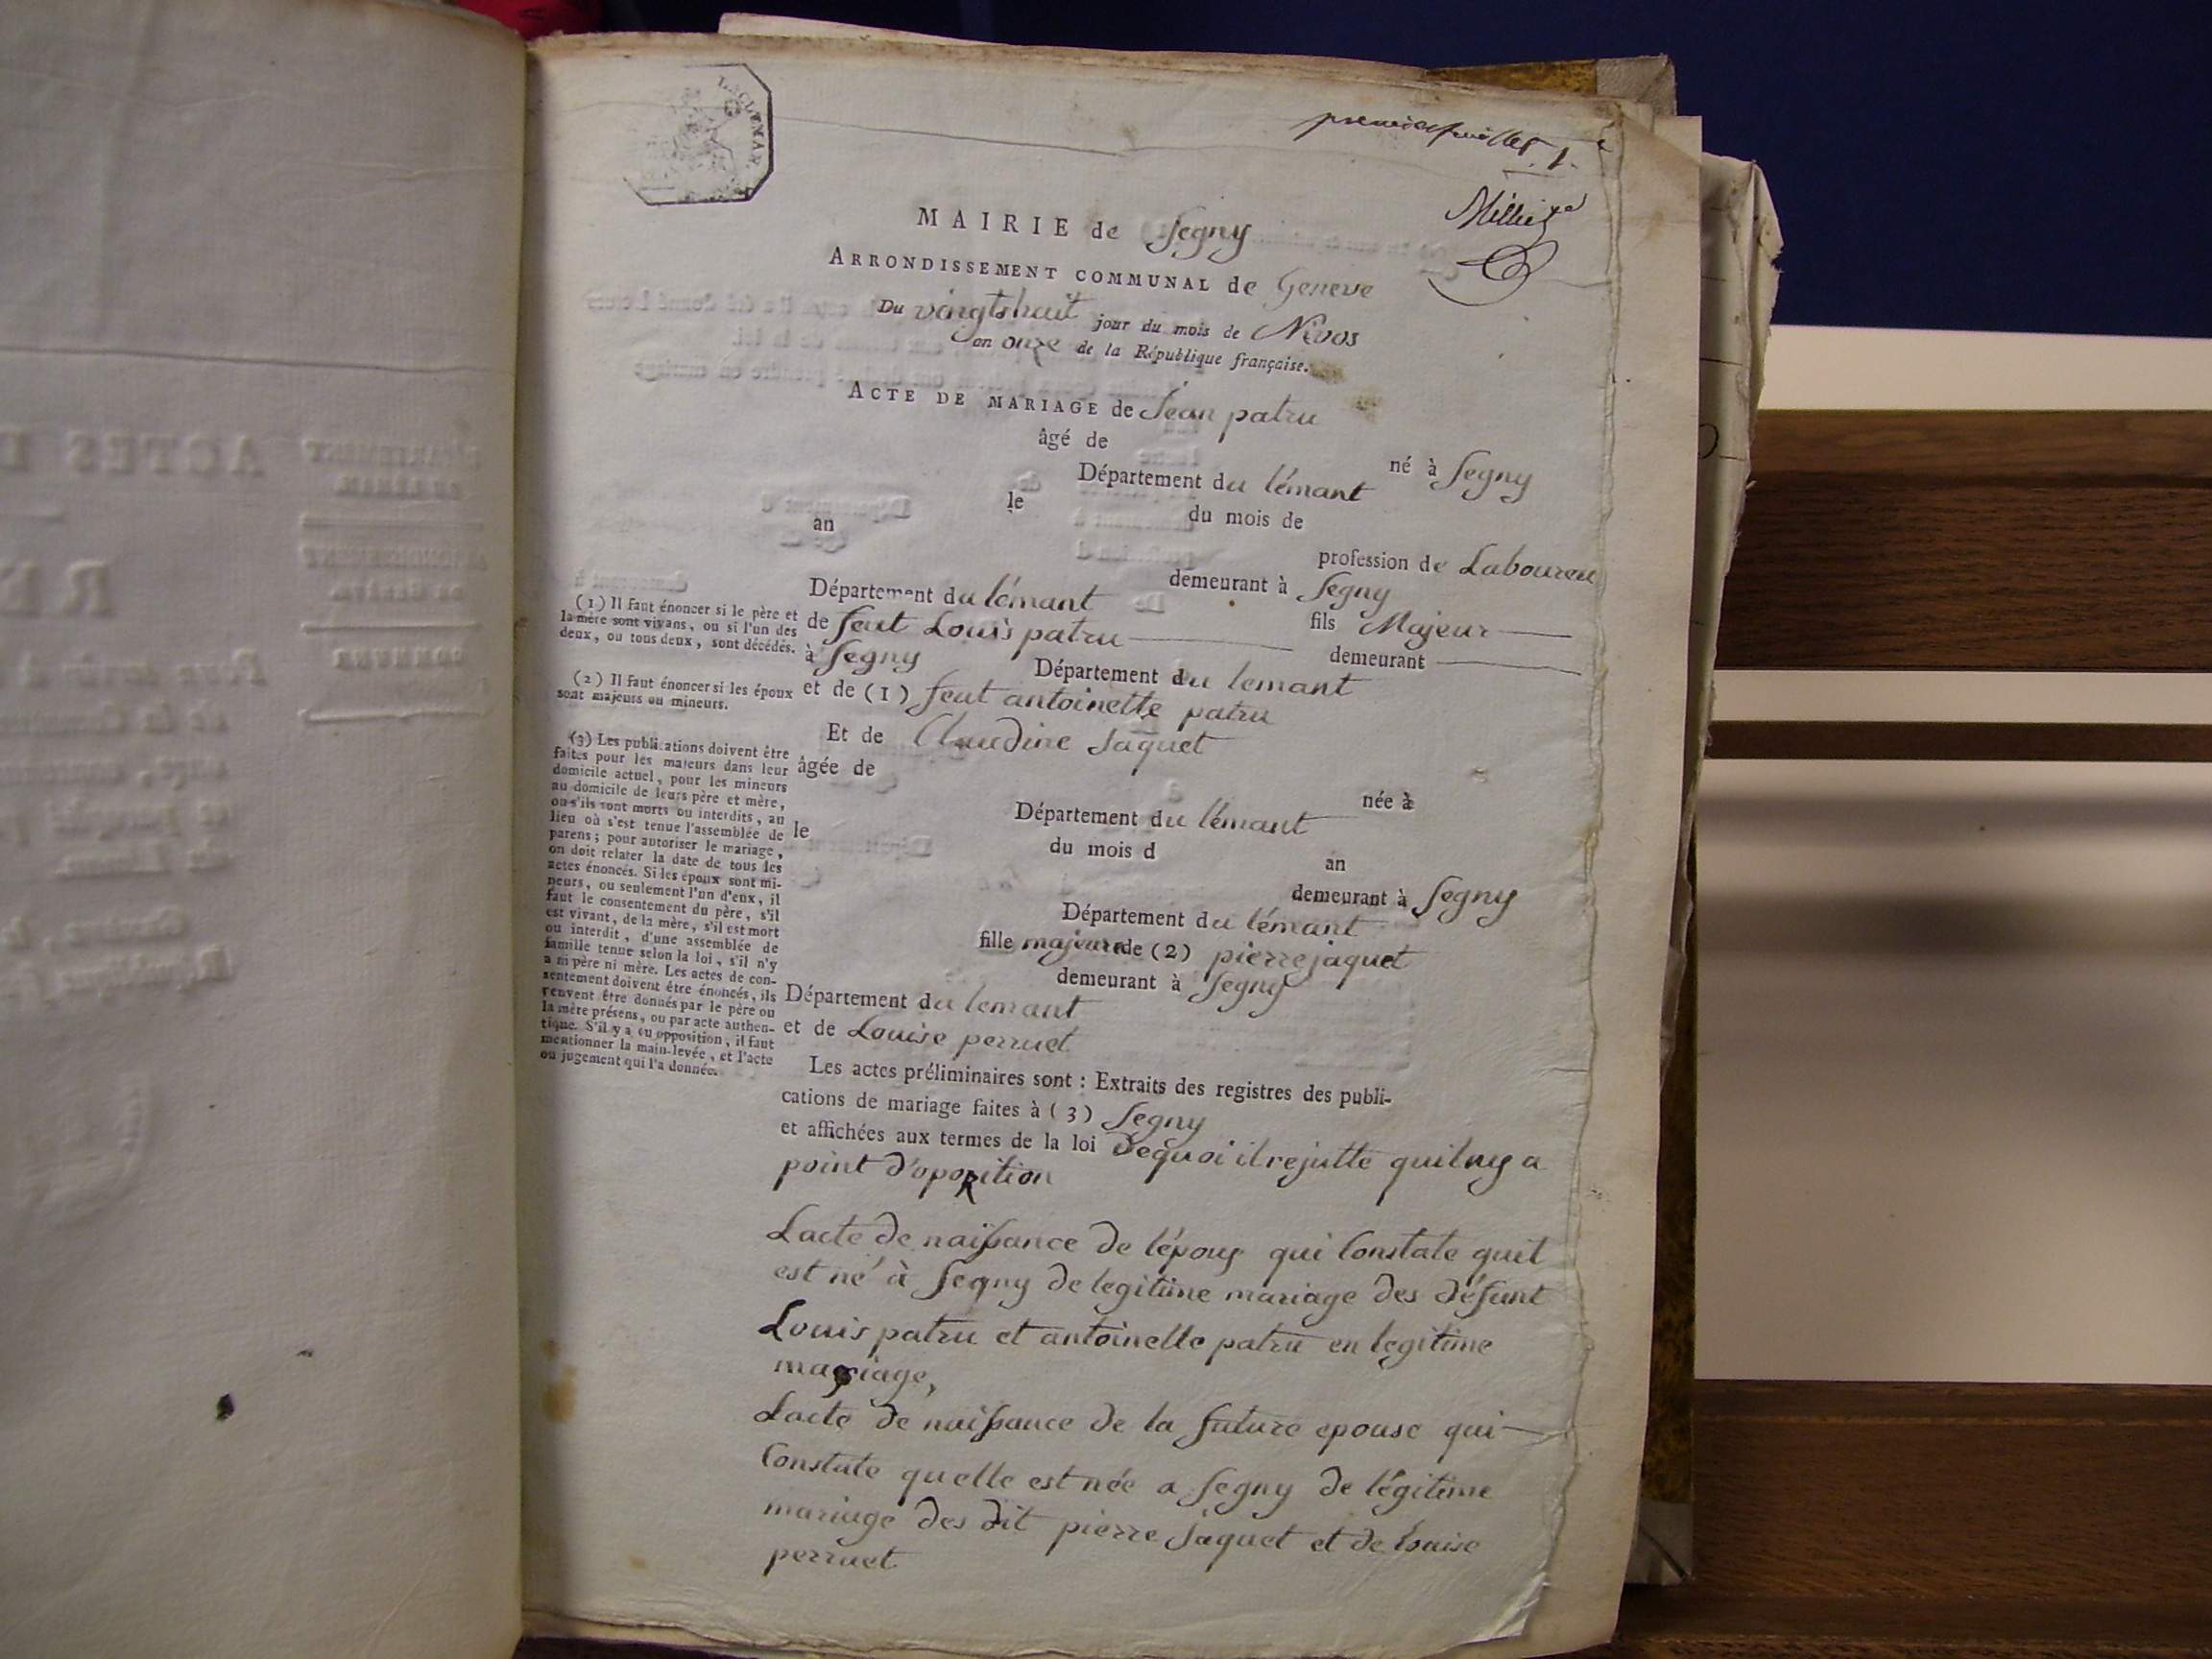 premier feuillet. 1.
MAIRIE de Segny
ARRONDISSEMENT COMMUNAL de Geneve
Du vingtshuit jour du mois de Nivos
an onze de la République française.
ACTE DE MARIAGE de Jean patru
âgé de
né à Segny
Département du lémant
le du mois de
an
profession de Laboureu
demeurant à Segny
Département du lémant
fils Majeur
de feut Louis patru
demeurant
à Segny Département du lemant
et de (1) feut antoinette patru
Et de Claudine Jaquet
âgée de
née à
Département du lémant
le du mois d an
demeurant à Segny
Département du lémant
fille majeure de (2) pierre jaquet
demeurant à Segny
Département du lemant
et de Louise perruet
Les actes préliminaires sont : Extraits des registres des publi-
cations de mariage faites à (3) Segny
et affichées aux termes de la loi Dequoi il rejulte quil ny a
point d'opozition
Lacte de naissance de lépoux qui Constate quil
est né à Segny de legitime mariage des défunt
Louis patru et antoinette patru en legitime
mariage,
Lacte de naissance de la future epouse qui
Constate quelle est née a Segny de légitime
mariage des dit pierre Jaquet et de Louise
perruet
(1) Il faut énoncer si le père et
la mère sont vivans, ou si l'un des
deux, ou tous deux, sont décédés.
(2) Il faut énoncer si les époux
sont majeurs ou mineurs.
(3) Les publications doivent être
faites pour les majeurs dans leur
domicile actuel, pour les mineurs
au domicile de leurs père et mère,
ou s'ils sont morts ou interdits, au
lieu où s'est tenue l'assemblée de
parens ; pour autoriser le mariage,
on doit relater la date de tous les
actes énoncés. Si les époux sont mi-
neurs, ou seulement l'un d'eux, il
faut le consentement du père, s'il
est vivant, de la mère, s'il est mort
ou interdit, d'une assemblée de
famille tenue selon la loi, s'il n'y
a ni père ni mère. Les actes de con-
sentement doivent être énoncés, ils
peuvent être donnés par le père ou
la mère présens, ou par acte authen-
tique. S'il y a eu opposition, il faut
mentionner la main-levée, et l'acte
ou jugement qui l'a donnée.